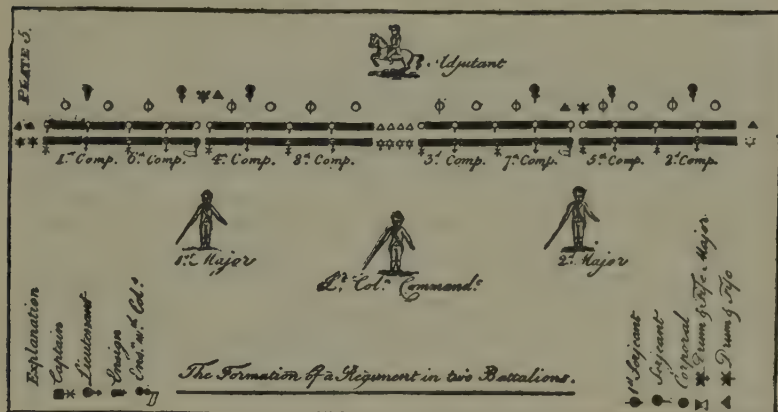 PLATE 5.
Adjutant
1st Comp. 6th Comp. 4th Comp. 8th Comp. 3d Comp. 7th Comp. 5th Comp. 2d Comp.
1st Major
2d Major
Lt Coln Commandt
Explanation
Captain
Lieutenant
Ensign
Ensn wth Cols
1st Serjeant
Serjeant
Corporal
Drum & Fife Major
Drum & Fife
The Formation of a Regiment in two Battalions.